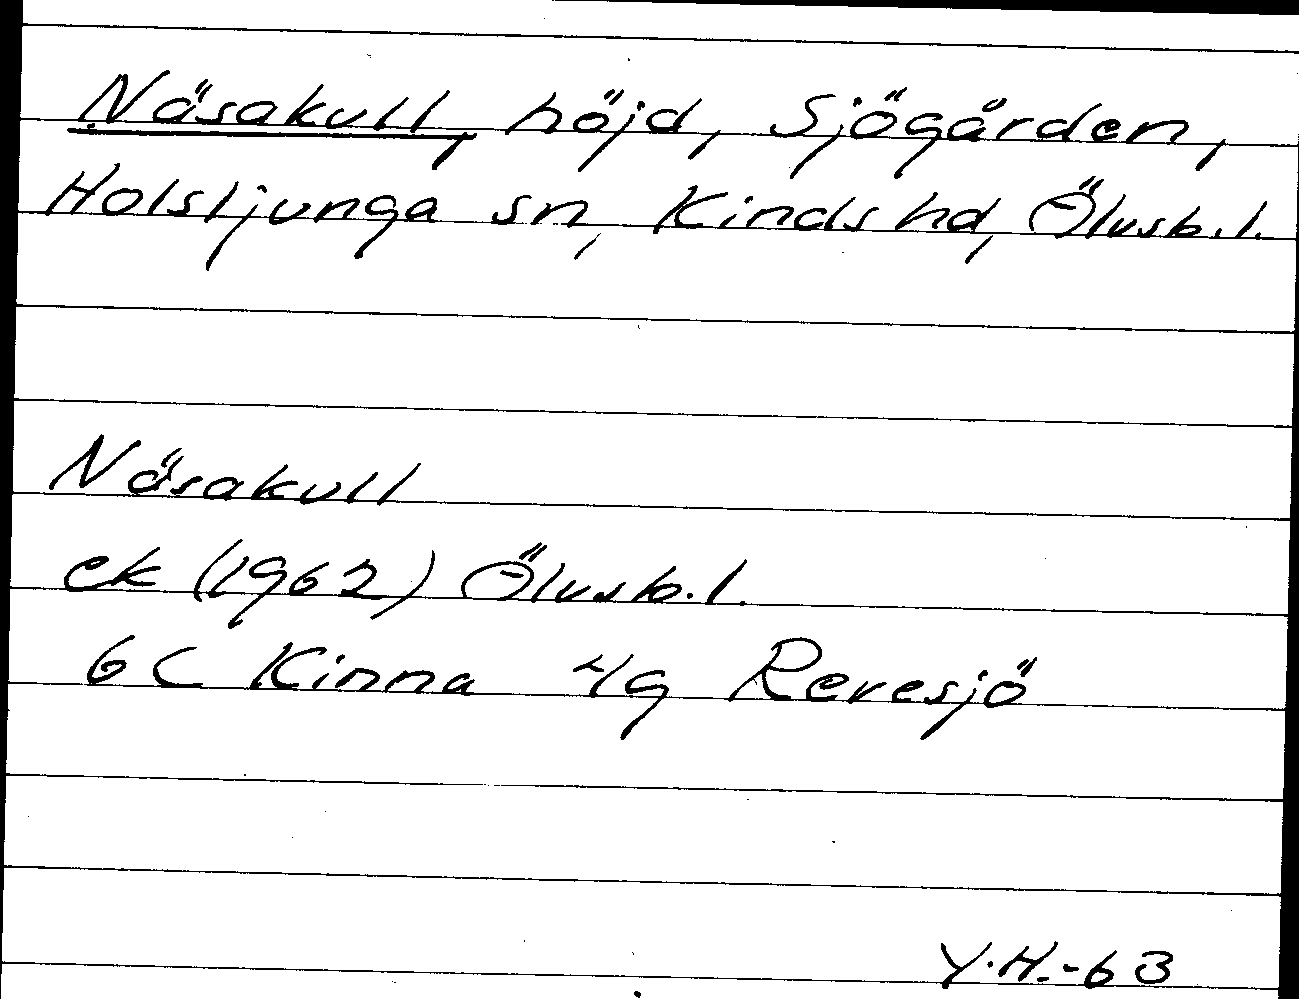 Näsakull, höjd, Sjögården,
Holsljunga sn, Kinds hd, Älvsb.l.
Näsakull
ek (1962) Älvsb.l.
6C Kinna 4g Revesjö
Y.H.-63